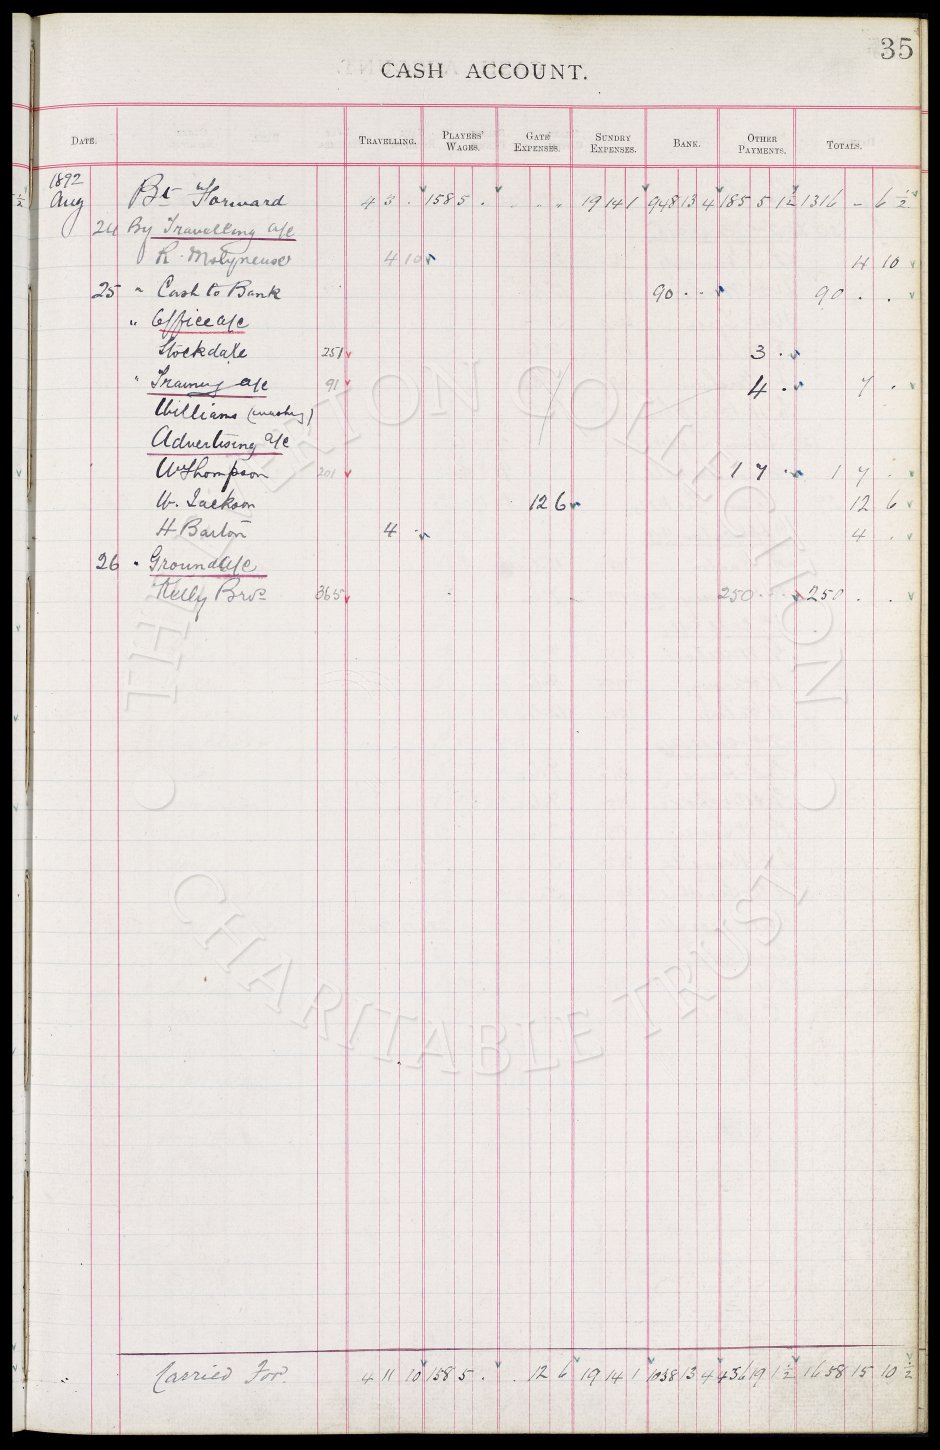 35
CASH ACCOUNT.
DATE. TRAVELLING. PLAYERS' WAGES. GATE EXPENSES. SUNDRY EXPENSES. BANK. OTHER PAYMENTS. TOTALS.
1892
Aug Bt Forward 4 3 . 158 5 . . . . 19 14 1 948 13 4 185 5 1½ 1316 - 6½
24 By Travelling a/c
R. Molyneux 4 10 4 10
25 " Cash to Bank 90 . . 90 . .
" Office a/c
Stockdale 251 3 .
" Training a/c 91 4 . 7 .
Williams (washing)
Advertising a/c
W Thompson 201 1 7 . 1 7 .
W. Jackson 12 6 12 6
H Barton 4 . 4 .
26 " Ground a/c
Kelly Bros 365 250 . . 250 . .
" Carried For. 4 11 10 158 5 . . 12 6 19 14 1 1038 13 4 436 19 1½ 1658 15 10½
THE EVERTON COLLECTION
CHARITABLE TRUST